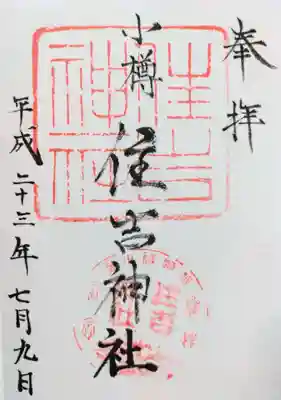 奉拝
小樽
住吉神社
平成二十三年七月九日
住吉神社